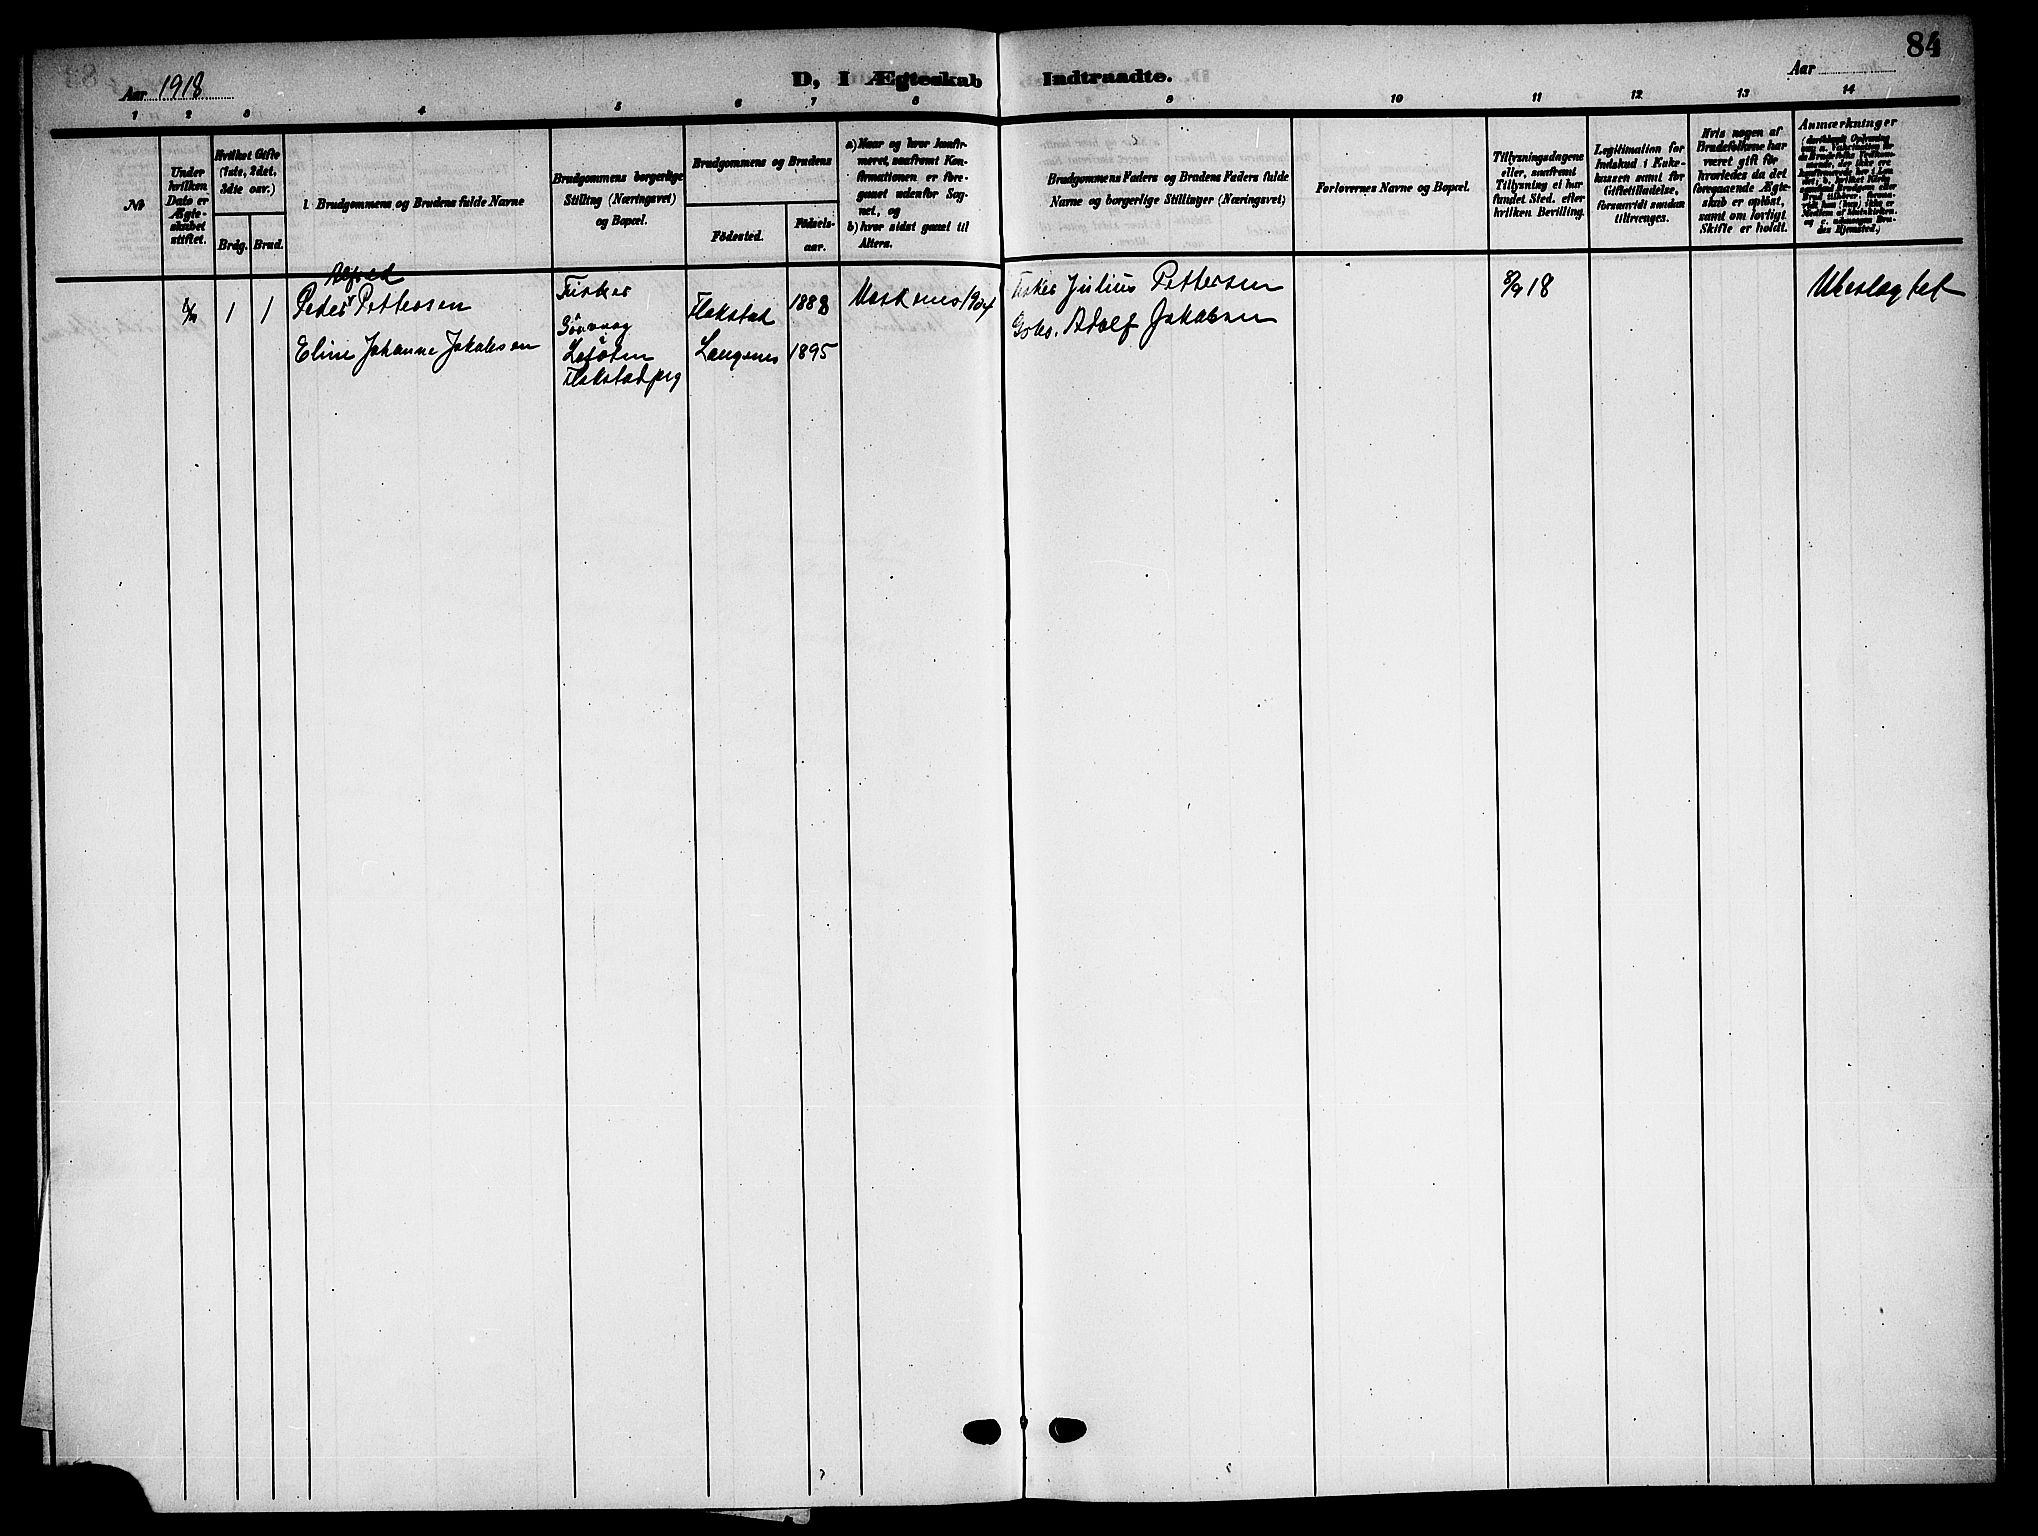 84
Aar 1918
D, I Ægteskab Indtraadte.
Aar
1 2 3 4 5 6 7 8 9 10 11 12 13 14
№
Under
hvilken
Dato er
Ægte-
skabet
stiftet.
Hvilket Gifte
(1ste, 2det,
3dte osv.)
Brdg. Brud.
Brudgommens og Brudens fulde Navne
Brudgommens borgerlige
Stilling (Næringsvei)
og Bopæl.
Brudgommens og Brudens
Födested.
Födsels-
aar.
a) Naar og hvor konfir-
meret, saafremt Kon-
firmationen er fore-
gaaet udenfor Sog-
net, og
b) hvor sidst gaaet til
Alters.
Brudgommens Faders og Brudens Faders fulde
Navne og borgerlige Stillinger (Næringsvei)
Forlovernes Navne og Bopæl.
Tillysningsdagene
eller, saafremt
Tillysning ei har
fundet Sted, efter
hvilken Bevilling.
Legitimation for
Indskud i Enke-
kassen samt for
Giftetilladelse,
forsaavidt saadan
tiltrænges.
Hvis nogen af
Brudefolkene har
været gift för
hvorledes da det
foregaaende Ægte-
skab er oplöst,
samt om lovligt
Skifte er holdt.
Anmærkninger
1 1
Alfred
Peder Pettersen
Fisker
Flakstad
1888
Moskenes 1904
Fisker Julius Pettersen
8/9 18
Ubeslægtet
Eline Johanne Jakobsen
Lofoten
Flakstad prg
Langenes
1895
Gbr. Adolf Jakobsen